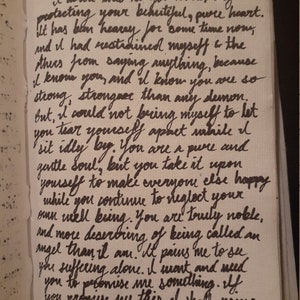 protecting your beautiful, pure heart.
It has been heavy for some time now,
and I had restrained myself & the
others from saying anything, because
I know you, and I know you are so
strong, stronger than any demon.
But, I could not bring myself to let
you tear yourself apart while I
sit idly by. You are a pure and
gentle soul, but you take it upon
yourself to make everyone else happy
while you continue to neglect your
own well being. You are truly noble,
and more deserving of being called an
angel than I am. It pains me to see
you suffering alone. I want and need
you to promise me something. If